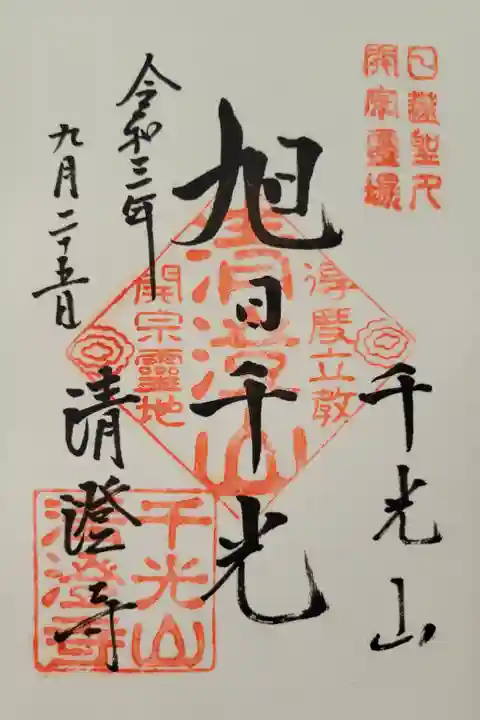 日蓮聖人
開宗霊場
千光山
得度立教
旭日千光
清澄山
開宗靈地
令和三年
九月二十五日
清澄寺
千光山
清澄寺